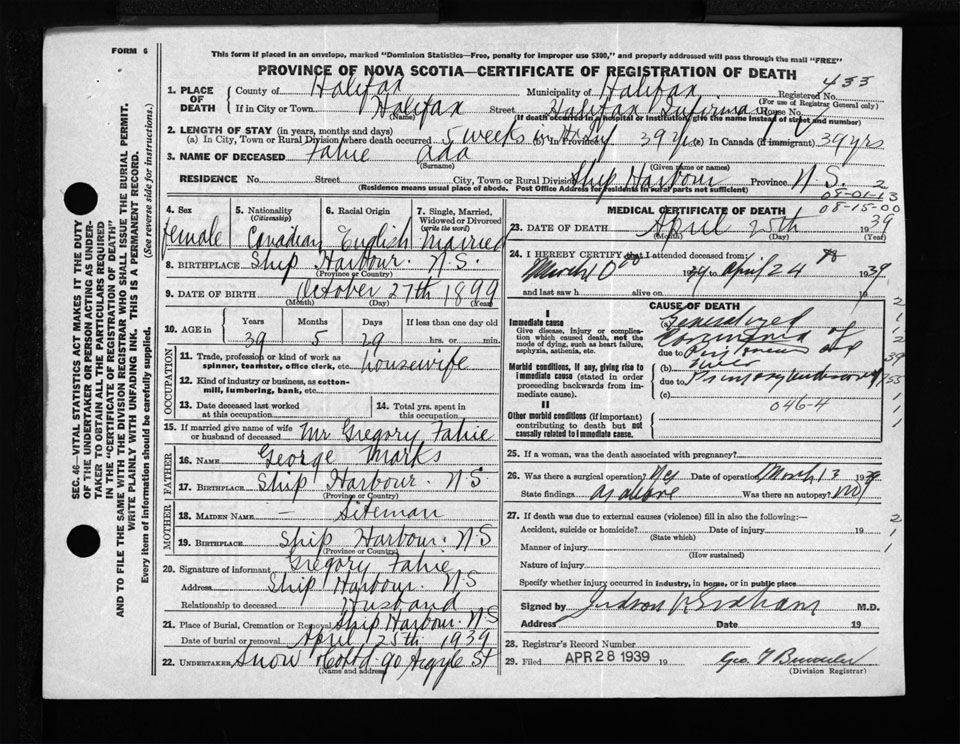 FORM 6
This form if placed in an envelope, marked "Dominion Statistics—Free, penalty for improper use $300," and properly addressed will pass through the mail "FREE"
PROVINCE OF NOVA SCOTIA—CERTIFICATE OF REGISTRATION OF DEATH
433
1. PLACE OF DEATH County of Halifax Municipality of Halifax Registered No.
(For use of Registrar General only)
If in City or Town Halifax Street Halifax Infirmary House No.
(Name) (If death occurred in a hospital or institution, give the name instead of street and number)
2. LENGTH OF STAY (in years, months and days)
(a) In City, Town or Rural Division where death occurred 5 weeks in Hosp (b) In Province 39 yrs (c) In Canada (if immigrant) 39 yrs
3. NAME OF DECEASED Fahie Ada
(Surname) (Given name or names)
RESIDENCE No. Street City, Town or Rural Division Ship Harbour Province N.S. 2
(Residence means usual place of abode. Post Office Address for residents in rural parts not sufficient)
08-01-13
08-15-00
4. Sex 5. Nationality (Citizenship) 6. Racial Origin 7. Single, Married, Widowed or Divorced (write the word)
female Canadian English Married
8. BIRTHPLACE Ship Harbour. N.S.
(Province or Country)
9. DATE OF BIRTH October 27th 1899
(Month) (Day) (Year)
10. AGE in Years Months Days If less than one day old
39 5 29 hrs. or min.
OCCUPATION
11. Trade, profession or kind of work as spinner, teamster, office clerk, etc. Housewife
12. Kind of industry or business, as cotton-mill, lumbering, bank, etc.
13. Date deceased last worked at this occupation
14. Total yrs. spent in this occupation
15. If married give name of wife or husband of deceased Mr Gregory Fahie
FATHER
16. NAME George Marks
17. BIRTHPLACE Ship Harbour. N.S
(Province or Country)
MOTHER
18. MAIDEN NAME — Siteman
19. BIRTHPLACE Ship Harbour. N.S
(Province or Country)
20. Signature of informant Gregory Fahie
Address Ship Harbour. N.S
Relationship to deceased Husband
21. Place of Burial, Cremation or Removal Ship Harbour. N.S
Date of burial or removal April 25th 1939
22. UNDERTAKER Snow & Co Ltd 90 Argyle St
(Name and address)
MEDICAL CERTIFICATE OF DEATH
23. DATE OF DEATH April 25th 1939
(Month) (Day) (Year)
24. I HEREBY CERTIFY that I attended deceased from
March 10 1939 to April 24 1939
and last saw h alive on 19
CAUSE OF DEATH
I
Immediate cause
Give disease, injury or complication which caused death, not the mode of dying, such as heart failure, asphyxia, asthenia, etc.
(a) Generalized
due to
Morbid conditions, if any, giving rise to immediate cause (stated in order proceeding backwards from immediate cause).
(b)
due to
(c)
046-4
II
Other morbid conditions (if important) contributing to death but not causally related to immediate cause.
25. If a woman, was the death associated with pregnancy?
26. Was there a surgical operation? Yes Date of operation March 13 1939
State findings as above Was there an autopsy? no
27. If death was due to external causes (violence) fill in also the following:—
Accident, suicide or homicide? Date of injury 19
(State which)
Manner of injury
(How sustained)
Nature of injury
Specify whether injury occurred in industry, in home, or in public place
Signed by Judson V Graham M.D.
Address Date 19
28. Registrar's Record Number
29. Filed APR 28 1939 19
(Division Registrar)
SEC. 46—VITAL STATISTICS ACT MAKES IT THE DUTY
OF THE UNDERTAKER OR PERSON ACTING AS UNDER-
TAKER TO OBTAIN ALL THE PARTICULARS REQUIRED
IN THE "CERTIFICATE OF REGISTRATION OF DEATH"
AND TO FILE THE SAME WITH THE DIVISION REGISTRAR WHO SHALL ISSUE THE BURIAL PERMIT.
WRITE PLAINLY WITH UNFADING INK. THIS IS A PERMANENT RECORD.
Every item of information should be carefully supplied. (See reverse side for instructions.)